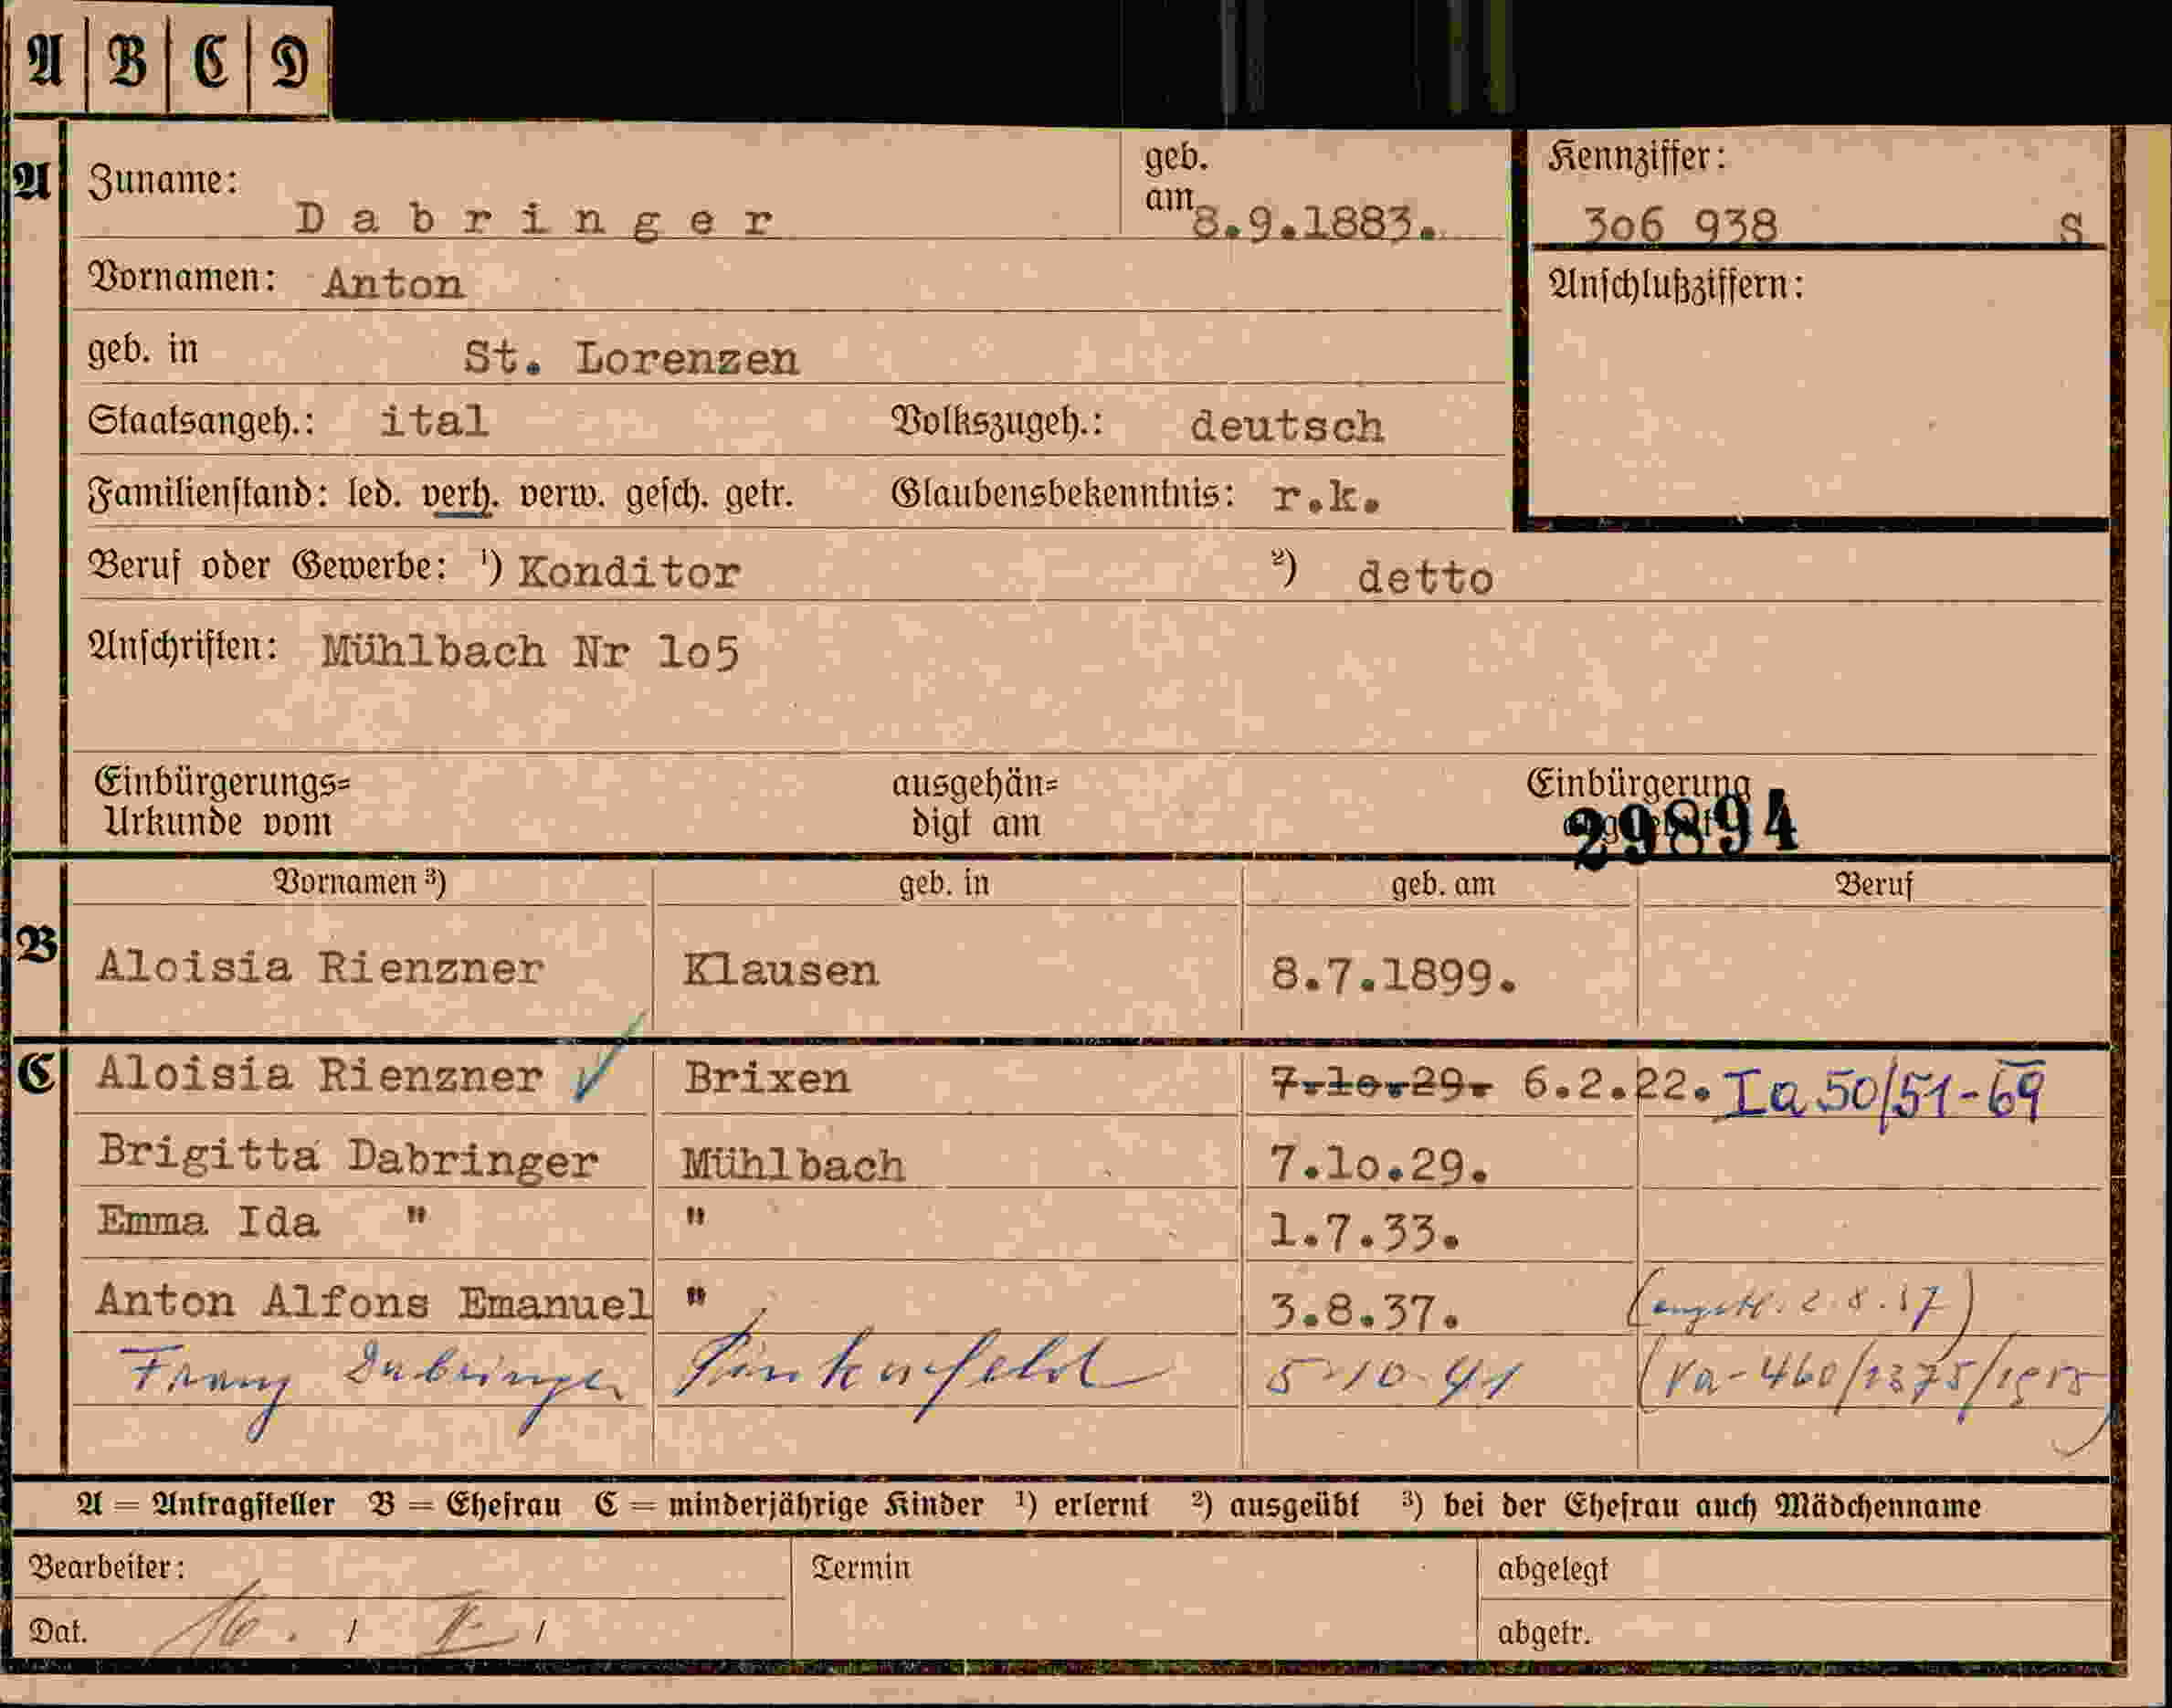 A B C D
A Zuname: Dabringer geb. am 8.9.1883. Kennziffer:
3o6 938 S
Vornamen: Anton Anschlußziffern:
geb. in St. Lorenzen
Staatsangeh.: ital Volkszugeh.: deutsch
Familienstand: led. verh. verw. gesch. getr. Glaubensbekenntnis: r.k.
Beruf oder Gewerbe: ¹) Konditor ²) detto
Anschriften: Mühlbach Nr 1o5
Einbürgerungs= ausgehän= Einbürgerung
Urkunde vom digt am 29894
Vornamen ³) geb. in geb. am Beruf
B Aloisia Rienzner Klausen 8.7.1899.
C Aloisia Rienzner ✓ Brixen 7.1o.29. 6.2.22. Ia 50/51-69
Brigitta Dabringer Mühlbach 7.1o.29.
Emma Ida " " 1.7.33.
Anton Alfons Emanuel " 3.8.37. 2.8.37)
Franz Dabringer Pinkafeld 5-10-41 (Va-460/1375/
A = Antragsteller B = Ehefrau C = minderjährige Kinder ¹) erlernt ²) ausgeübt ³) bei der Ehefrau auch Mädchenname
Bearbeiter: Termin abgelegt
Dat. 16. / / abgetr.